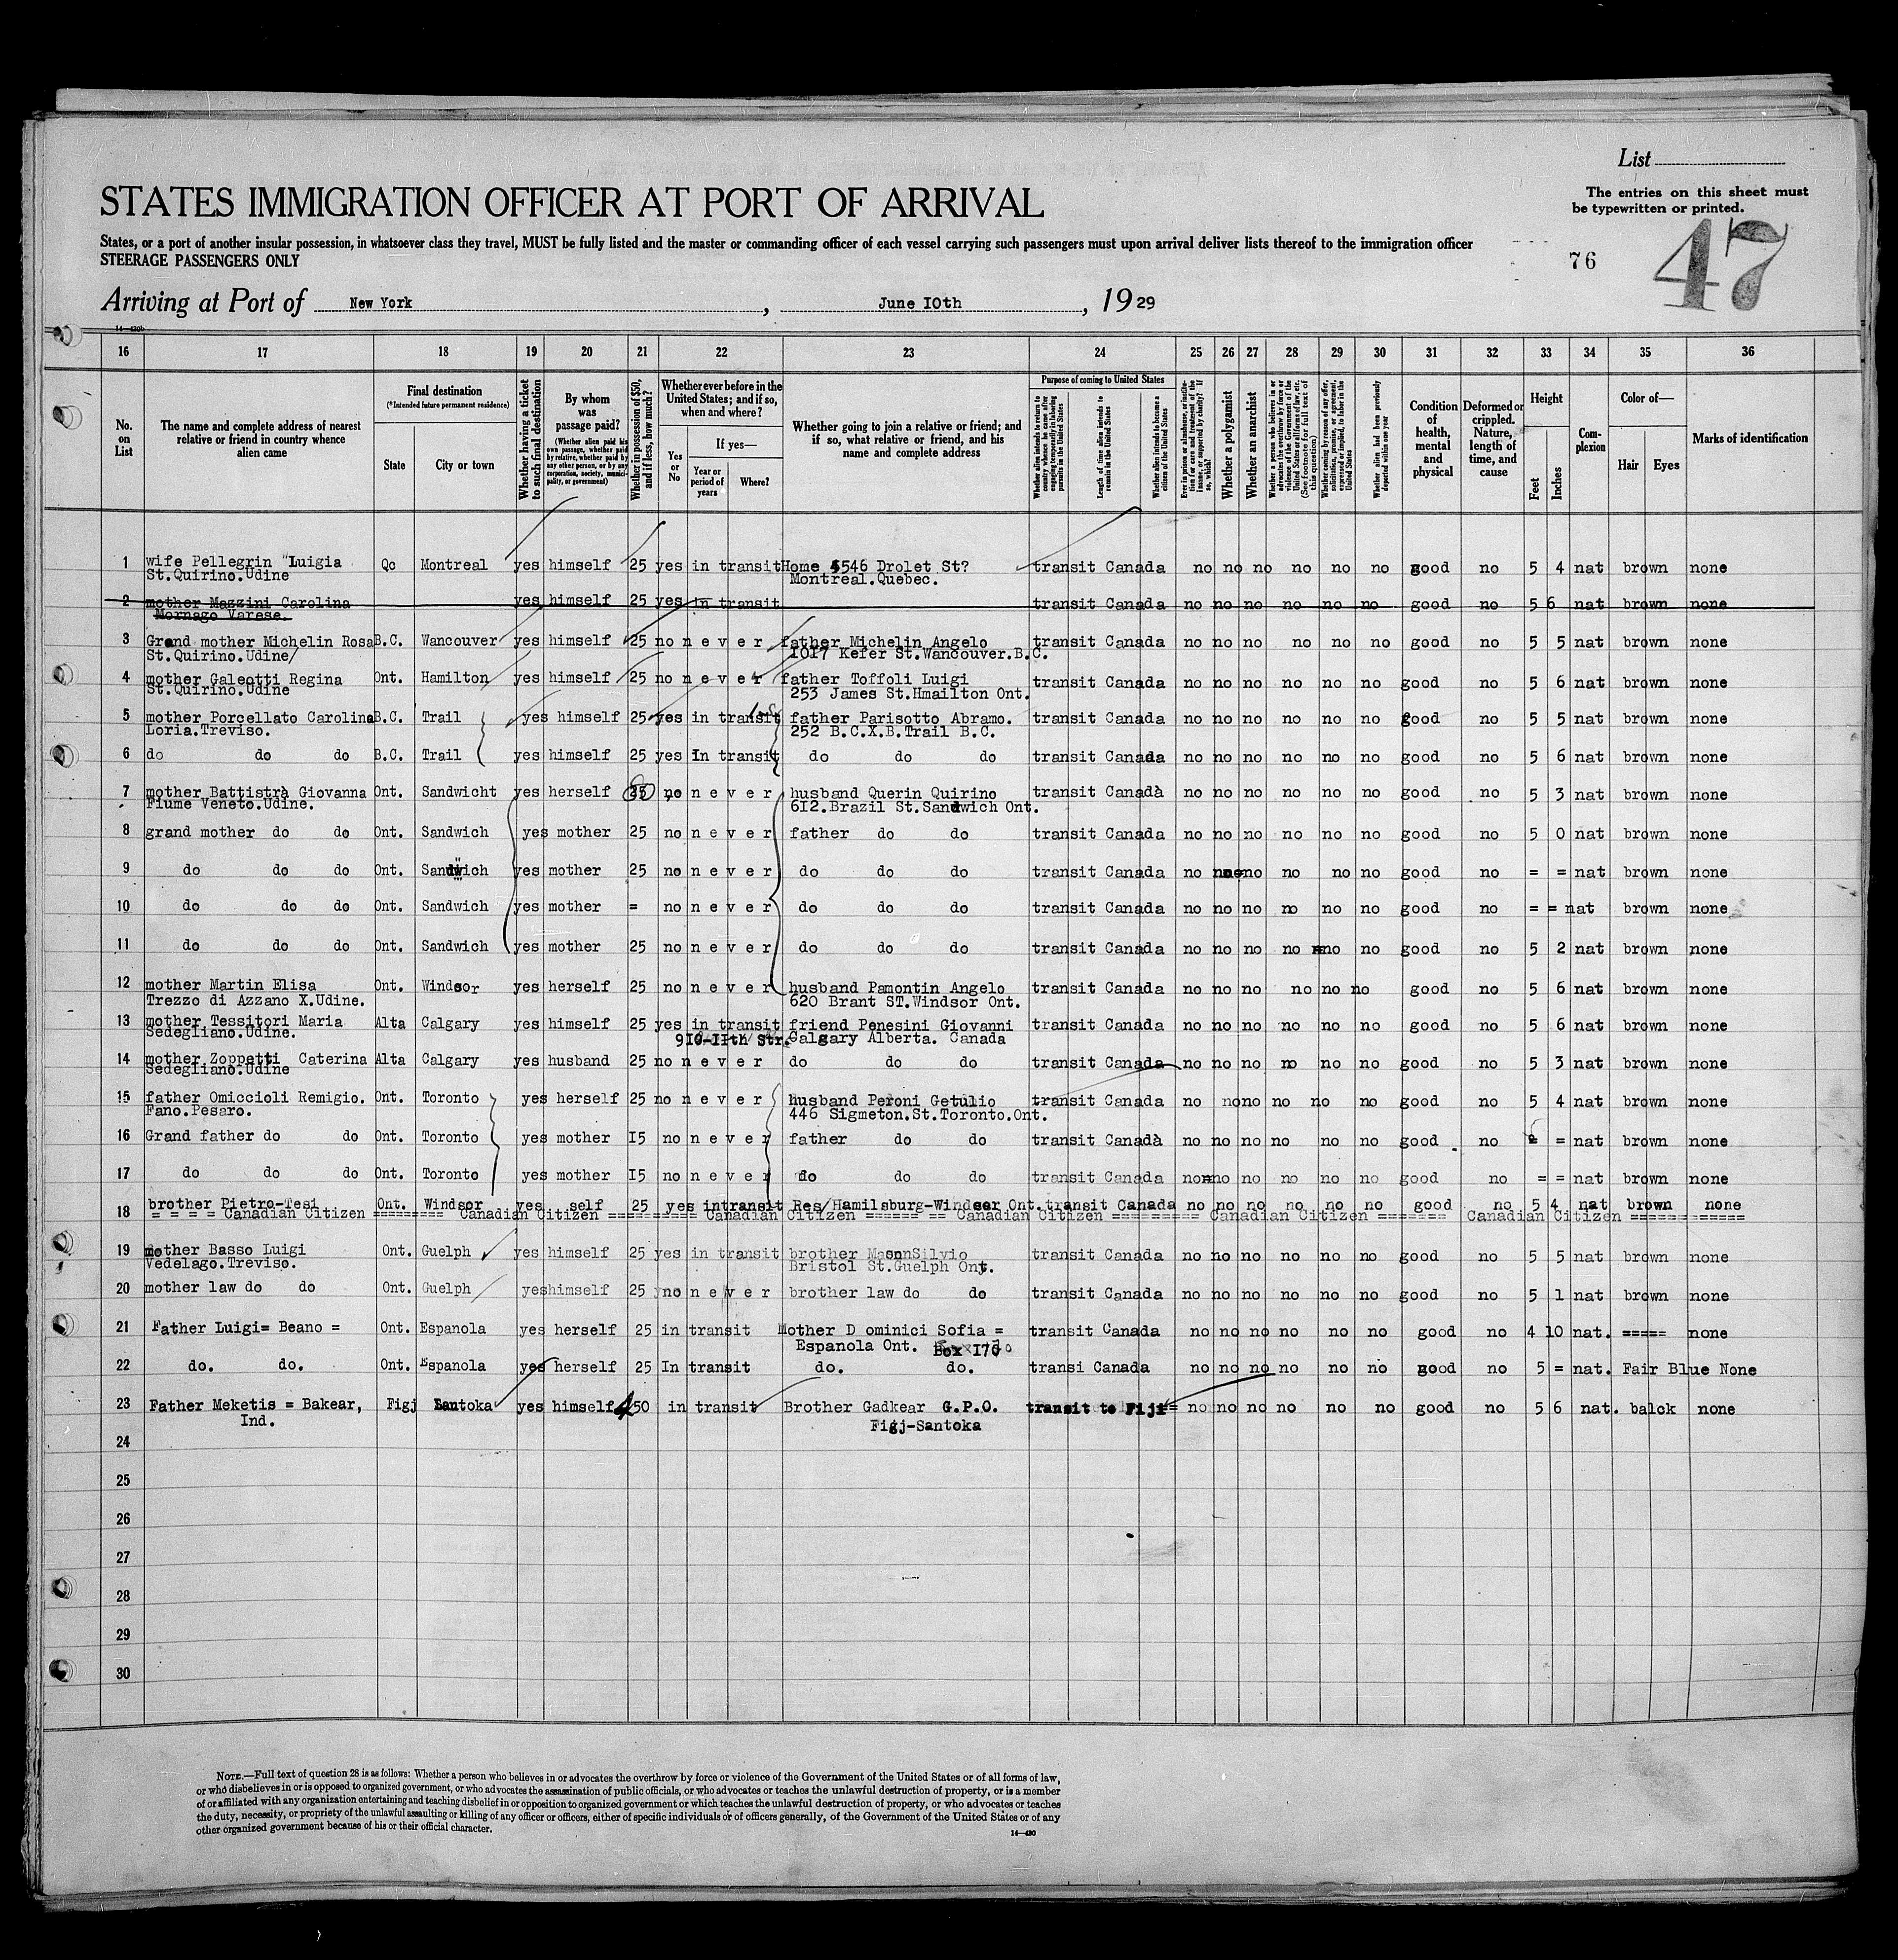 List
STATES IMMIGRATION OFFICER AT PORT OF ARRIVAL
The entries on this sheet must
be typewritten or printed.
States, or a port of another insular possession, in whatsoever class they travel, MUST be fully listed and the master or commanding officer of each vessel carrying such passengers must upon arrival deliver lists thereof to the immigration officer
STEERAGE PASSENGERS ONLY
76
47
Arriving at Port of New York, June I0th, 1929
14—430b
16 17 18 19 20 21 22 23 24 25 26 27 28 29 30 31 32 33 34 35 36
No. on List
The name and complete address of nearest relative or friend in country whence alien came
Final destination
(*Intended future permanent residence)
State
City or town
Whether having a ticket to such final destination
By whom was passage paid?
(Whether alien paid his own passage, whether paid by relative, whether paid by any other person, or by any corporation, society, municipality, or government)
Whether in possession of $50, and if less, how much?
Whether ever before in the United States; and if so, when and where?
Yes or No
If yes—
Year or period of years
Where?
Whether going to join a relative or friend; and if so, what relative or friend, and his name and complete address
Purpose of coming to United States
Whether alien intends to return to country whence he came after engaging temporarily in laboring pursuits in the United States
Length of time alien intends to remain in the United States
Whether alien intends to become a citizen of the United States
Ever in prison or almshouse, or institution for care and treatment of the insane, or supported by charity? If so, which?
Whether a polygamist
Whether an anarchist
Whether a person who believes in or advocates the overthrow by force or violence of the Government of the United States or all forms of law, etc. (See footnote for full text of this question)
Whether coming by reason of any offer, solicitation, promise, or agreement, expressed or implied, to labor in the United States
Whether alien had been previously deported within one year
Condition of health, mental and physical
Deformed or crippled. Nature, length of time, and cause
Height
Feet
Inches
Complexion
Color of—
Hair
Eyes
Marks of identification
1 wife Pellegrin "Luigia Qc Montreal yes himself 25 yes in transit Home 4546 Drolet St? transit Canada no no no no no no good no 5 4 nat brown none
St.Quirino.Udine Montreal.Quebec.
2 mother Mazzini Carolina yes himself 25 yes in transit transit Canada no no no no no no good no 5 6 nat brown none
Mornago Varese.
3 Grand mother Michelin Rosa B.C. Wancouver yes himself 25 no n e v e r father Michelin Angelo transit Canada no no no no no no good no 5 5 nat brown none
St.Quirino.Udine/ 1017 Kefer St.Wancouver.B.C.
4 mother Galeotti Regina Ont. Hamilton yes himself 25 no n e v e r father Toffoli Luigi transit Canada no no no no no no good no 5 6 nat brown none
St.Quirino.Udine 253 James St.Hmailton Ont.
5 mother Porcellato Carolina B.C. Trail yes himself 25 yes in transit father Parisotto Abramo. transit Canada no no no no no no good no 5 5 nat brown none
Loria.Treviso. 252 B.C.X.B.Trail B.C.
6 do do do B.C. Trail yes himself 25 yes In transit do do do transit Canada no no no no no no good no 5 6 nat brown none
7 mother Battistrà Giovanna Ont. Sandwicht yes herself no n e v e r husband Querin Quirino transit Canadà no no no no no no good no 5 3 nat brown none
Fiume Veneto.Udine. 6I2.Brazil St.Sandwich Ont.
8 grand mother do do Ont. Sandwich yes mother 25 no n e v e r father do do transit Canada no no no no no no good no 5 0 nat brown none
9 do do do Ont. Sandwich yes mother 25 no n e v e r do do do transit Canada no no=no no no no good no = = nat brown none
10 do do do Ont. Sandwich yes mother = no n e v e r do do do transit Canada no no no no no no good no = = nat brown none
11 do do do Ont. Sandwich yes mother 25 no n e v e r do do do transit Canada no no no no no no good no 5 2 nat brown none
12 mother Martin Elisa Ont. Windsor yes herself 25 no n e v e r husband Pamontin Angelo transit Canada no no no no no no good no 5 6 nat brown none
Trezzo di Azzano X.Udine. 620 Brant ST.Windsor Ont.
13 mother Tessitori Maria Alta Calgary yes himself 25 yes in transit friend Penesini Giovanni transit Canada no no no no no no good no 5 6 nat brown none
Sedegliano.Udine. 910-IIth Str. Calgary Alberta. Canada
14 mother Zoppetti Caterina Alta Calgary yes husband 25 no n e v e r do do do transit Canada no no no no no no good no 5 3 nat brown none
Sedegliano.Udine
15 father Omiccioli Remigio. Ont. Toronto yes herself 25 no n e v e r husband Peroni Getulio transit Canada no no no no no no good no 5 4 nat brown none
Fano.Pesaro. 446 Sigmeton.St.Toronto.Ont.
16 Grand father do do Ont. Toronto yes mother I5 no n e v e r father do do transit Canadà no no no no no no good no = = nat brown none
17 do do do Ont. Toronto yes mother I5 no n e v e r do do do transit Canada no=no no no no no good no = = nat brown none
18 brother Pietro-Tesi Ont. Windsor yes self 25 yes intransit Res/Hamilsburg-Windsor Ont. transit Canada no no no no no no good no 5 4 nat brown none
= = = = Canadian Citizen ========= Canadian Citizen ========= Canadian Citizen ====== == Canadian Citizen ========== Canadian Citizen ======= Canadian Citizen =============
19 mother Basso Luigi Ont. Guelph yes himself 25 yes in transit brother MasonSilvio transit Canada no no no no no no good no 5 5 nat brown none
Vedelago.Treviso. Bristol St.Guelph Ont.
20 mother law do do Ont. Guelph yes himself 25 no n e v e r brother law do do transit Canada no no no no no no good no 5 1 nat brown none
21 Father Luigi= Beano = Ont. Espanola yes herself 25 in transit Mother D ominici Sofia = transit Canada no no no no no no good no 4 10 nat. ===== none
Espanola Ont. Box I70
22 do. do. Ont. Espanola yes herself 25 In transit do. do. transi Canada no no no no no no good no 5 = nat. Fair Blue None
23 Father Meketis = Bakear, Figj Santoka yes himself 450 in transit Brother Gadkear G.P.O. transit to Fiji= no no no no no no good no 5 6 nat. balck none
Ind. Figj-Santoka
24
25
26
27
28
29
30
NOTE.—Full text of question 28 is as follows: Whether a person who believes in or advocates the overthrow by force or violence of the Government of the United States or of all forms of law,
or who disbelieves in or is opposed to organized government, or who advocates the assassination of public officials, or who advocates or teaches the unlawful destruction of property, or is a member
of or affiliated with any organization entertaining and teaching disbelief in or opposition to organized government or which teaches the unlawful destruction of property, or who advocates or teaches
the duty, necessity, or propriety of the unlawful assaulting or killing of any officer or officers, either of specific individuals or of officers generally, of the Government of the United States or of any
other organized government because of his or their official character.
14—430